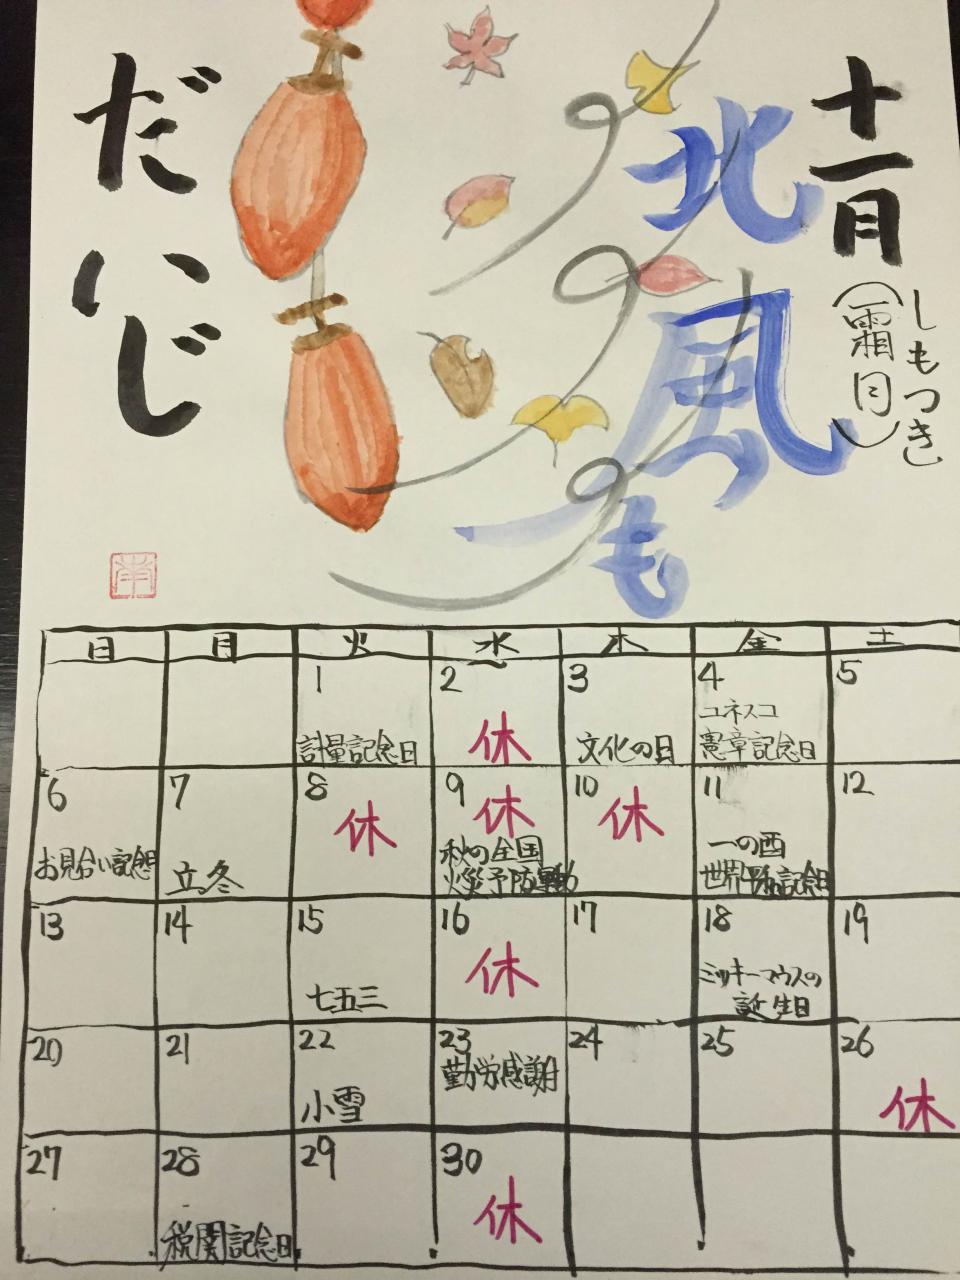 十一月
しもつき
(霜月)
北風
つも
だいじ
日 月 火 水 木 金 土
1 2 3 4 5
休
ユネスコ
計量記念日 文化の日 憲章記念日
6 7 8 9 10 11 12
休 休 休
お見合い記念日 立冬 秋の全国 一の酉
火災予防運動 世界平和記念日
13 14 15 16 17 18 19
休
七五三 ミッキーマウスの
誕生日
20 21 22 23 24 25 26
勤労感謝
小雪 休
27 28 29 30
休
税関記念日